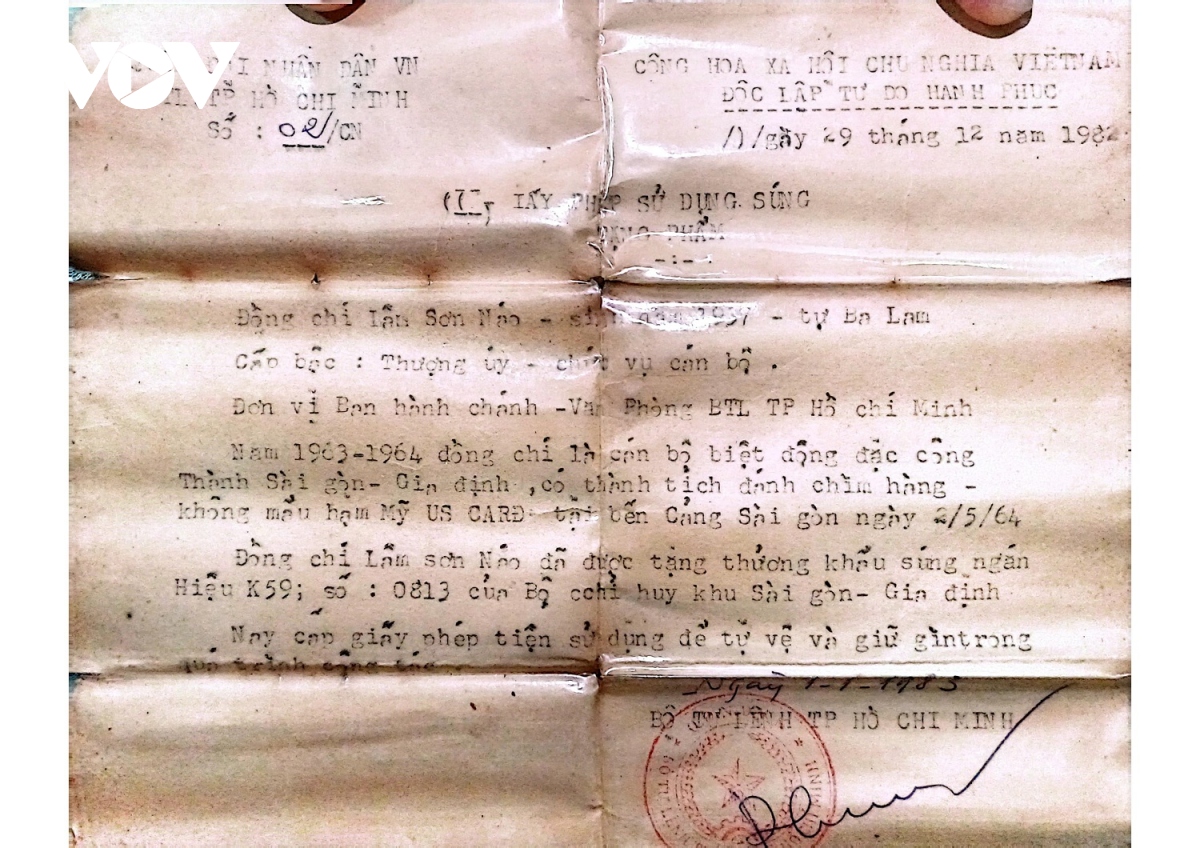 VOV
NHÂN DÂN VN
CỘNG HOA XA HỘI CHU NGHIA VIETNAM
TP HỒ CHI MINH
ĐÔC LẬP TƯ DO HANH PHUC
Số : 02/CN
/)/gầy 29 tháng 12 nam 1982
IẤY PHÉP SỬ DỤNG SÚNG
TẶNG PHẨM
-:-
Đồng chí Lâm Sơn Náo - sinh năm 1937 - tự Ba Lam
Cấp bậc : Thượng úy - chức vụ cán bộ .
Đơn vị Ban hành chánh -Văn Phòng BTL TP Hồ chí Minh
Năm 1963-1964 đồng chí là cán bộ biệt động đặc công
Thành Sài gòn- Gia định ,có thành tịch đánh chìm hàng -
không mẩu hạm Mỹ US CARD tại bến Cảng Sài gòn ngày 2/5/64
Đồng chí Lâm sơn Náo đã được tặng thưởng khẩu súng ngắn
Hiệu K59; số : 0813 của Bộ cchỉ huy khu Sài gòn- Gia định
Nay cấp giấy phép tiện sử dụng để tự vệ và giữ gìntrong
quá trình công tác
Ngày 1-1-1983
BỘ TƯ LỆNH TP HỒ CHI MINH